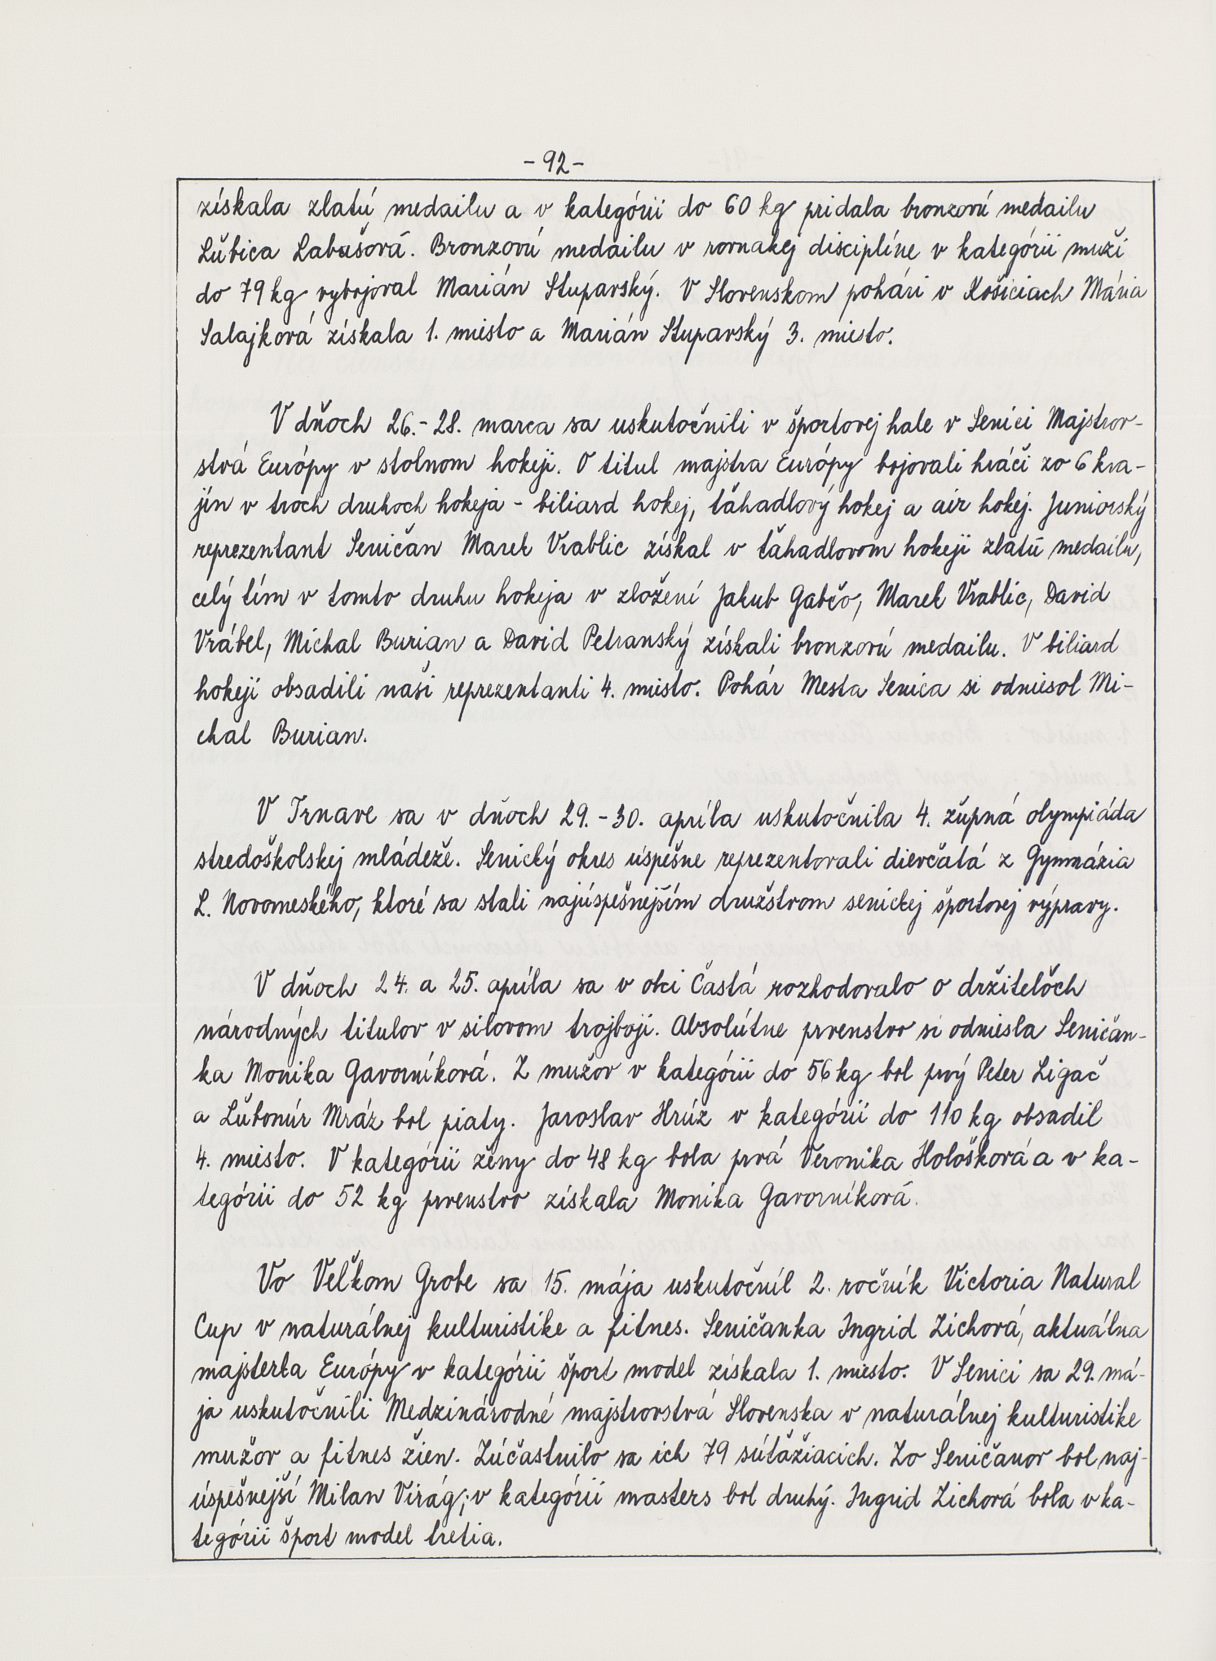 - 92 -
získala zlatú medailu a v kategórii do 60 kg pridala bronzovú medailu
Ľubica Labušová. Bronzovú medailu v rovnakej disciplíne v kategórii muži
do 79 kg vybojoval Marián Stuparský. V Slovenskom pohári v Košiciach Mária
Salajková získala 1. miesto a Marián Stuparský 3. miesto.
V dňoch 26.-28. marca sa uskutočnili v športovej hale v Senici Majstrov-
stvá Európy v stolnom hokeji. O titul majstra Európy bojovali hráči zo 6 kra-
jín v troch druhoch hokeja - biliard hokej, ťahadlový hokej a air hokej. Juniorský
reprezentant Seničan Marek Vrablic získal v ťahadlovom hokeji zlatú medailu,
celý tím v tomto druhu hokeja v zložení Jakub Gabčo, Marek Vrablic, David
Vrábel, Michal Burian a David Petranský získali bronzovú medailu. V biliard
hokeji obsadili naši reprezentanti 4. miesto. Pohár Mesta Senica si odniesol Mi-
chal Burian.
V Trnave sa v dňoch 29.-30. apríla uskutočnila 4. župná olympiáda
stredoškolskej mládeže. Senický okres úspešne reprezentovali dievčatá z Gymnázia
L. Novomeského, ktoré sa stali najúspešnejším družstvom senickej športovej výpravy.
V dňoch 24. a 25. apríla sa v obci Častá rozhodovalo o držiteľoch
národných titulov v silovom trojboji. Absolútne prvenstvo si odniesla Seničan-
ka Monika Gavorníková. Z mužov v kategórii do 56 kg bol prvý Peter Ligač
a Ľubomír Mráz bol piaty. Jaroslav Hrúz v kategórii do 110 kg obsadil
4. miesto. V kategórii ženy do 48 kg bola prvá Veronika Hološková a v ka-
tegórii do 52 kg prvenstvo získala Monika Gavorníková.
Vo Veľkom Grobe sa 15. mája uskutočnil 2. ročník Victoria Natural
Cup v naturálnej kulturistike a fitnes. Seničanka Ingrid Zichová, aktuálna
majsterka Európy v kategórii šport model získala 1. miesto. V Senici sa 29. má-
ja uskutočnili Medzinárodné majstrovstvá Slovenska v naturálnej kulturistike
mužov a fitnes žien. Zúčastnilo sa ich 79 súťažiacich. Zo Seničanov bol naj-
úspešnejší Milan Virág, v kategórii masters bol druhý. Ingrid Zichová bola v ka-
tegórii šport model tretia.